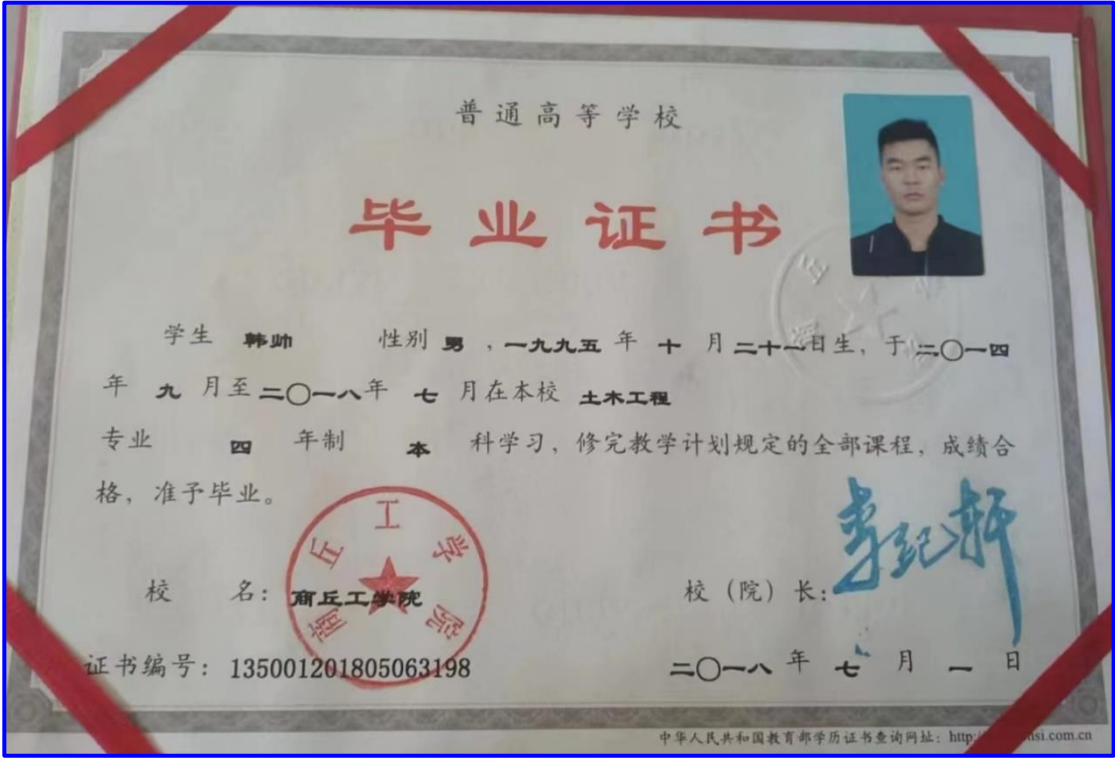 普通高等学校
毕业证书
学生 韩帅 性别 男 ，一九九五 年 十 月 二十一日生，于 二〇一四
年 九 月至 二〇一八年 七 月在本校 土木工程
专业 四 年制 本 科学习，修完教学计划规定的全部课程，成绩合
格，准予毕业。
商丘工学院
校 名：商丘工学院
校（院）长：李纪轩
证书编号：135001201805063198
二〇一八 年 七 月 一 日
中华人民共和国教育部学历证书查询网址：http
si.com.cn